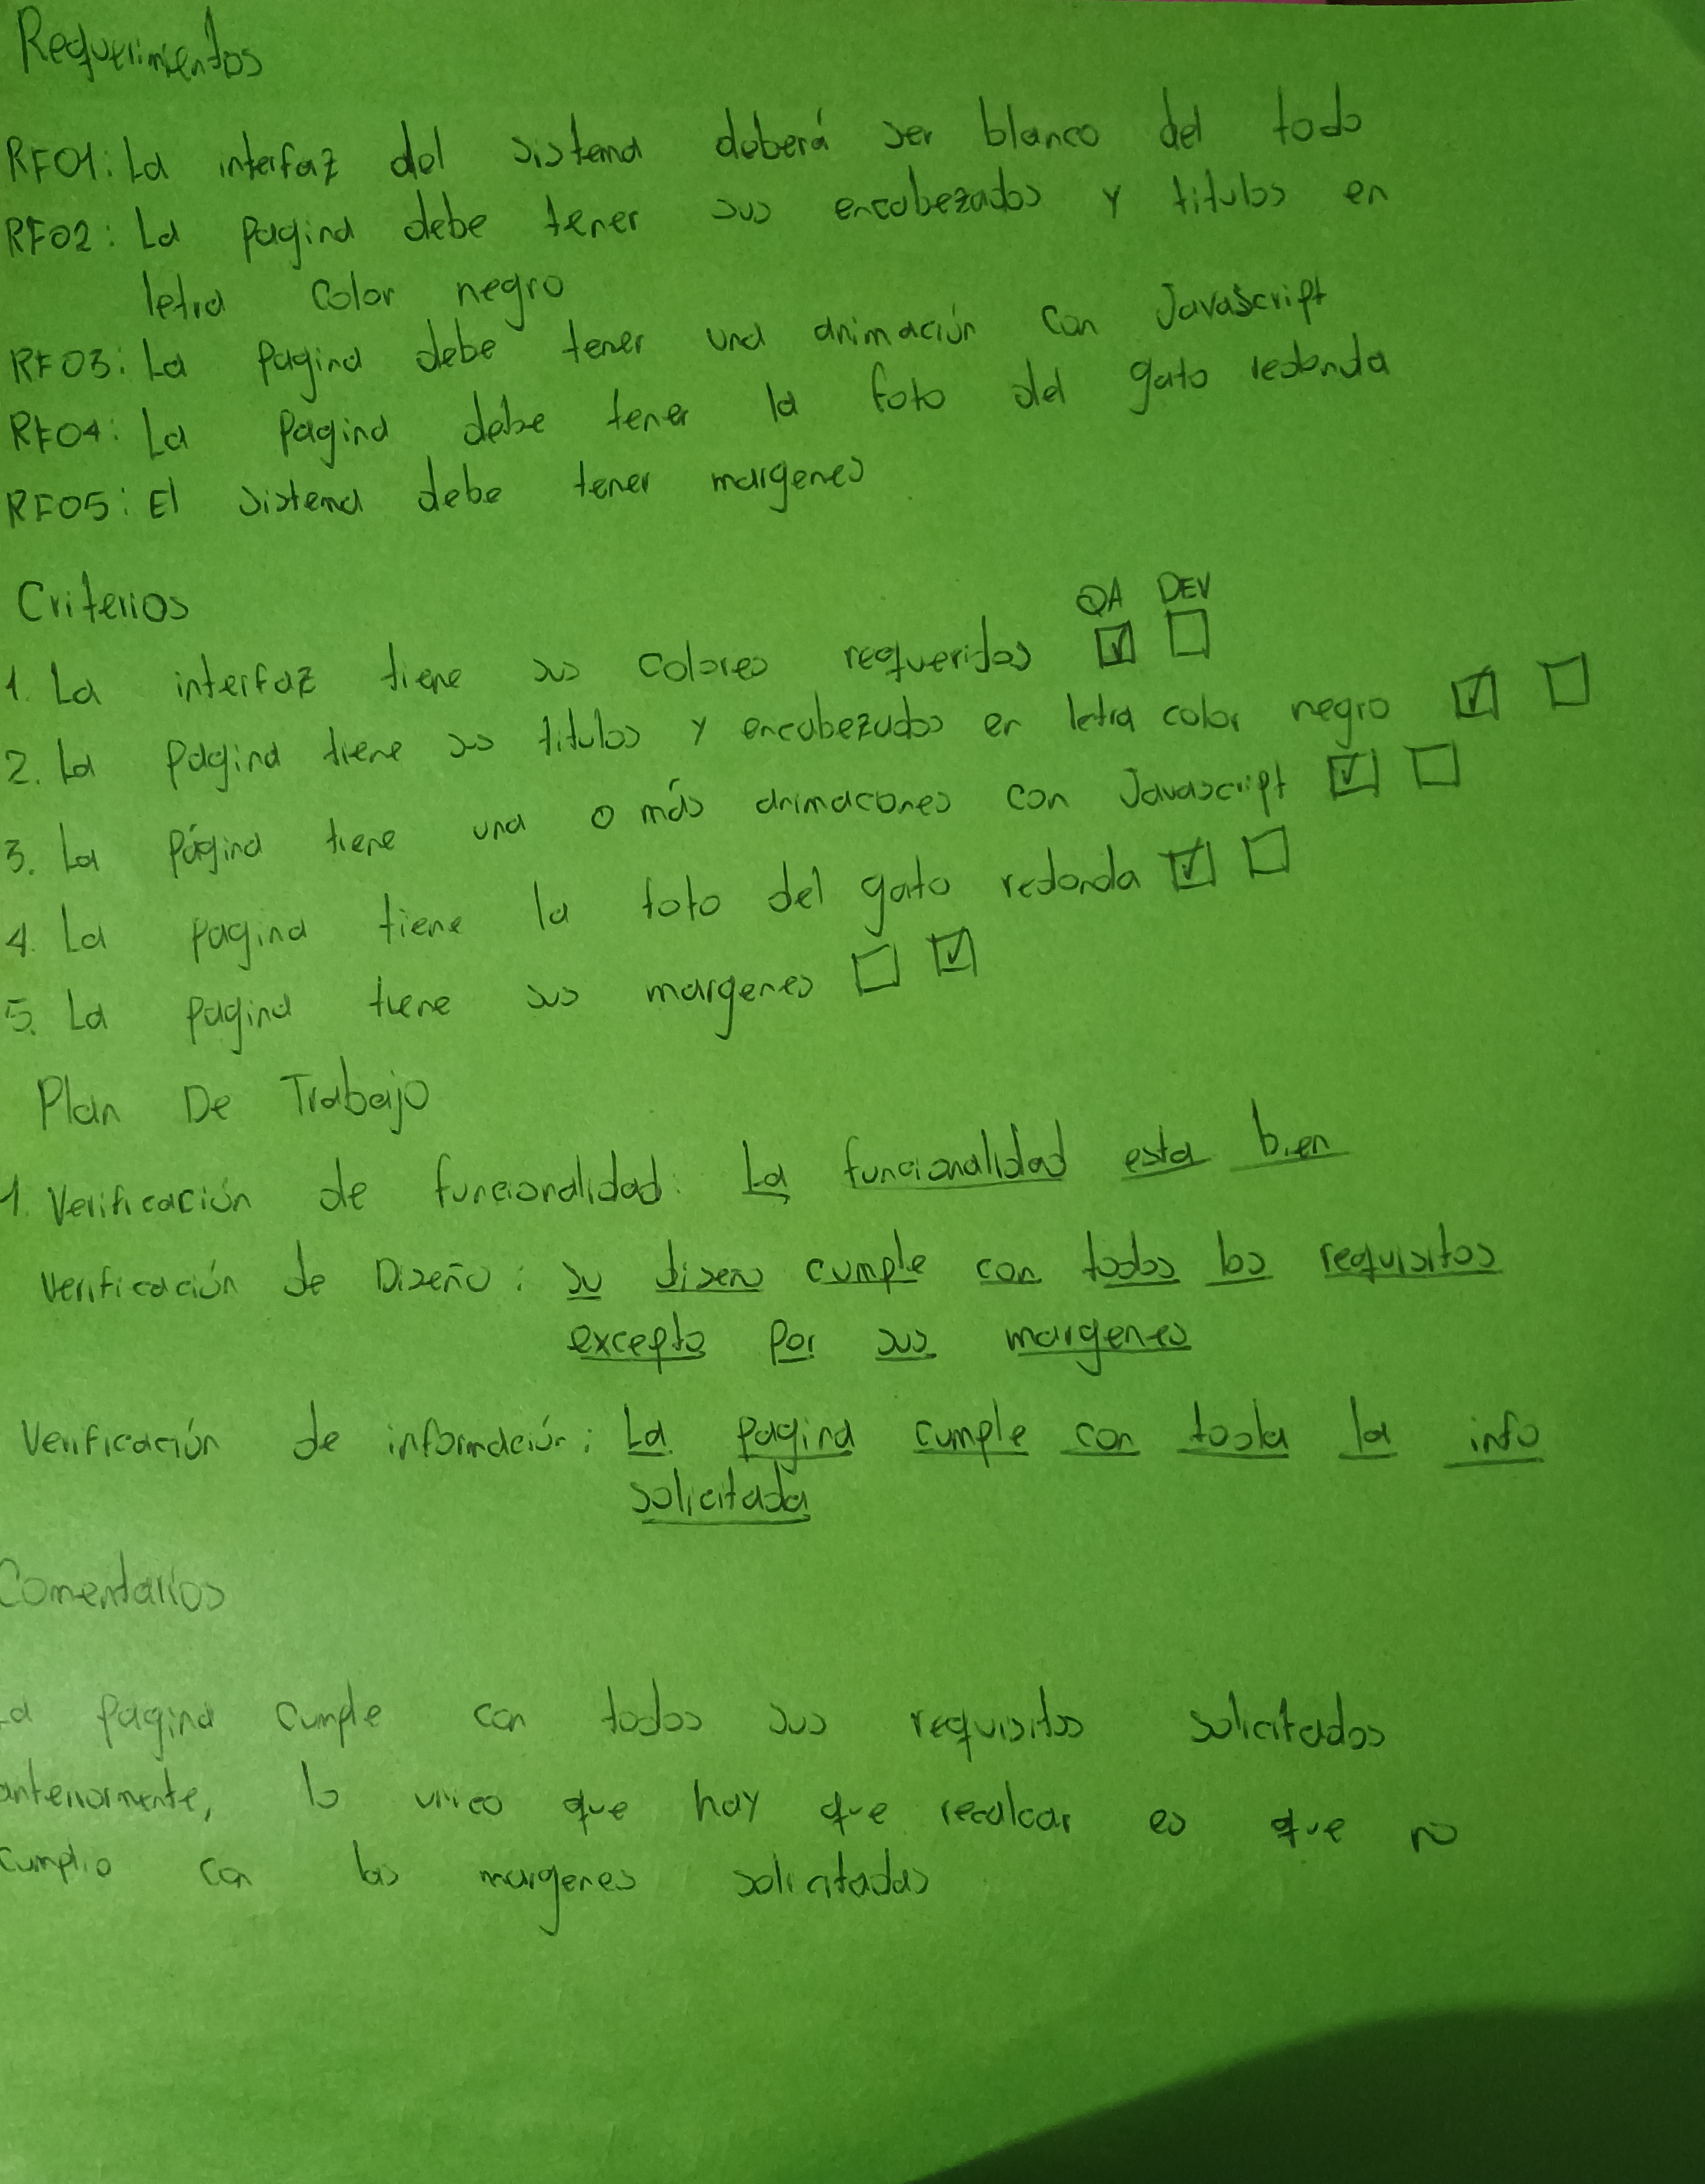 Requerimientos
RF01: La interfaz del sistema deberá ser blanco del todo
RF02: La pagina debe tener sus encabezados y titulos en
letra color negro
RF03: La Pagina debe tener una animación con Javascript
RF04: La Pagina debe tener la foto del gato redonda
RF05: El sistema debe tener margenes
Criterios
QA DEV
1. La interfaz tiene sus colores requeridos ☑ ☐
2. La Pagina tiene sus titulos y encabezados en letra color negro ☑ ☐
3. La Página tiene una o más animacones con Javascript ☑ ☐
4. La pagina tiene la foto del gato redonda ☑ ☐
5. La pagina tiene sus margenes ☐ ☑
Plan De Trabajo
1. Verificación de funcionalidad: La funcionalidad esta bien
Verificación de Diseño: su diseño cumple con todos los requisitos
excepto por sus margenes
Verificación de información: La pagina cumple con toda la info
solicitada
Comentarios
La pagina cumple con todos sus requisitos solicitados
anteriormente, lo unico que hay que recalcar es que no
cumplio con las margenes solicitadas